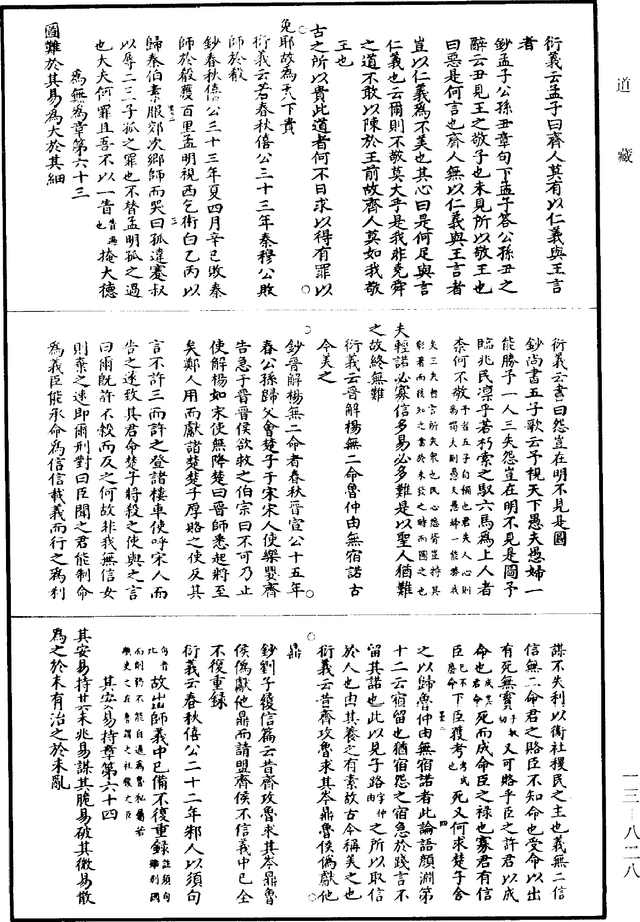 道藏
衍義云孟子曰齊人莫有以仁義與王言
者
鈔孟子公孫丑章句下孟子答公孫丑之
辭云丑見王之敬子也未見所以敬王也
曰惡是何言也齊人無以仁義與王言者
豈以仁義為不美也其心曰是何足與言
仁義也云爾則不敬莫大乎是我非堯舜
之道不敢以陳於王前故齊人莫如我敬
王也
古之所以貴此道者何不日求以得有罪以
免耶故為天下貴
衍義云若春秋僖公三十三年秦穆公敗
師於殽
鈔春秋僖公三十三年夏四月辛巳敗秦
師於殽獲百里孟明視西乞術白乙丙以
歸秦伯素服郊次鄉師而哭曰孤違蹇叔
以辱二三子孤之罪也不替孟明孤之過
也大夫何罪且吾不以一眚掩大德
為無為章第六十三
圖難於其易為大於其細
衍義云書曰怨豈在明不見是圖
鈔尚書五子歌云予視天下愚夫愚婦一
能勝予一人三失怨豈在明不見是圖予
臨兆民凜乎若朽索之馭六馬為上人者
柰何不敬
夫輕諾必寡信多易必多難是以聖人猶難
之故終無難
衍義云晉解楊無二命魯仲由無宿諾古
今美之
鈔晉解楊無二命者春秋晉宣公十五年
春公孫歸父會楚子于宋宋人使樂嬰齊
告急于晉晉侯欲救之伯宗曰不可乃止
使解楊如宋使無降楚曰晉師悉起將至
矣鄭人囚而獻諸楚楚子厚賂之使反其
言不許三而許之登諸樓車使呼宋人而
告之遂致其君命楚子將殺之使與之言
曰爾既許不穀而反之何故非我無信女
則棄之速即爾刑對曰臣聞之君能制命
為義臣能承命為信信載義而行之為利
謀不失利以衛社稷民之主也義無二信
信無二命君之賂臣不知命也受命以出
有死無霣又可賂乎臣之許君以成
命也死而成命臣之祿也寡君有信
臣下臣獲考死又何求楚子舍
之以歸魯仲由無宿諾者此論語顏淵第
十二云宿留也猶宿怨之宿急於踐言不
留其諾也此以見子路之所以取信
於人也由其養之有素故古今稱美之也
衍義云昔齊攻魯求其岑鼎魯侯偽獻他
鼎
鈔劉子履信篇云昔齊攻魯求其岑鼎魯
侯偽獻他鼎而請盟齊侯不信義中已全
不復重錄
衍義云春秋僖公二十二年邾人以須句
故出師義中已備不復重錄
其安易持章第六十四
其安易持其未兆易謀其脆易破其微易散
為之於未有治之於未亂
一三—八二八